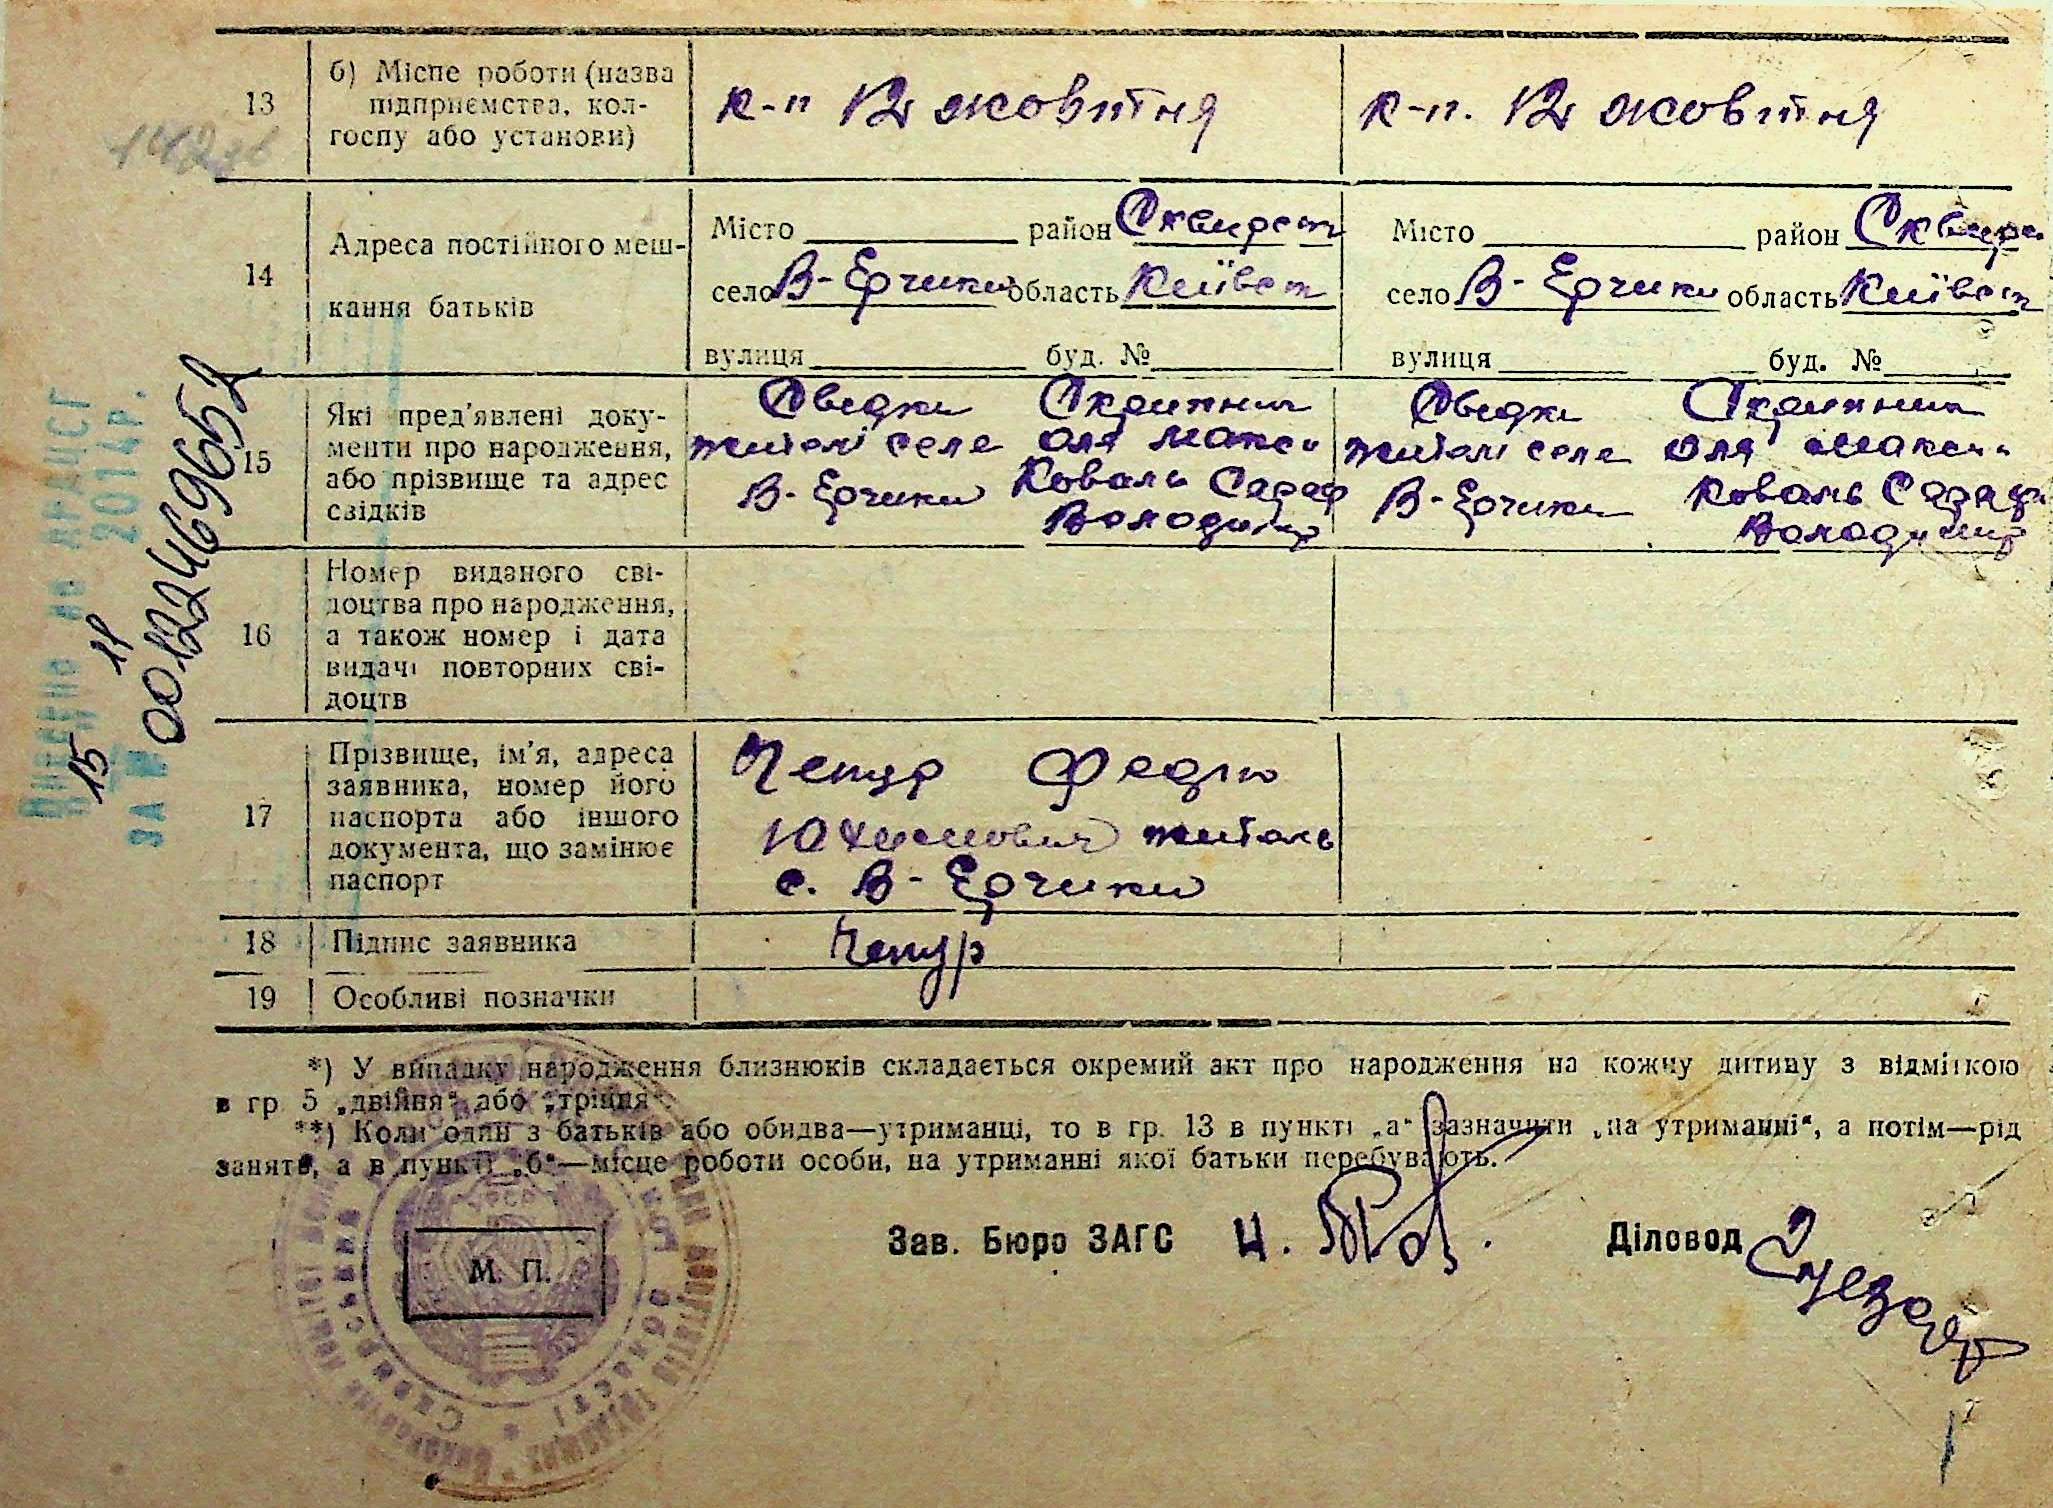 13
б) Місце роботи (назва
підприємства, кол-
госпу або установи)
к-п 12 жовтня
к-п. 12 жовтня
14
Адреса постійного меш-
кання батьків
Місто район Сквирст
село В-Єрчики область Київст
вулиця буд. №
Місто район Сквирс
село В-Єрчики область Київст
вулиця буд. №
15
Які пред'явлені доку-
менти про народження,
або прізвище та адрес
свідків
Сведки
жителі села
В-Єрчики
Коваль
Володимир
Сведки
жителі села
В-Єрчики
Коваль
Володимир
16
Номер виданого сві-
доцтва про народження,
а також номер і дата
видачі повторних сві-
доцтв
17
Прізвище, ім'я, адреса
заявника, номер його
паспорта або іншого
документа, що замінює
паспорт
Чепур
Юхимович житель
с. В-Єрчики
18
Підпис заявника
Чепур
19
Особливі позначки
*) У випадку народження близнюків складається окремий акт про народження на кожну дитину з відміткою
в гр 5 „двійня“ або „трійня“.
**) Коли один з батьків або обидва—утриманці, то в гр. 13 в пункті „а“ зазначити „на утриманні“, а потім—рід
занять, а в пункті „б“—місце роботи особи, на утриманні якої батьки перебувають.
Зав. Бюро ЗАГС
Діловод
М. П.
Внесено до ДРАЦСГ
15 11 2014р.
ЗА №
00122469652